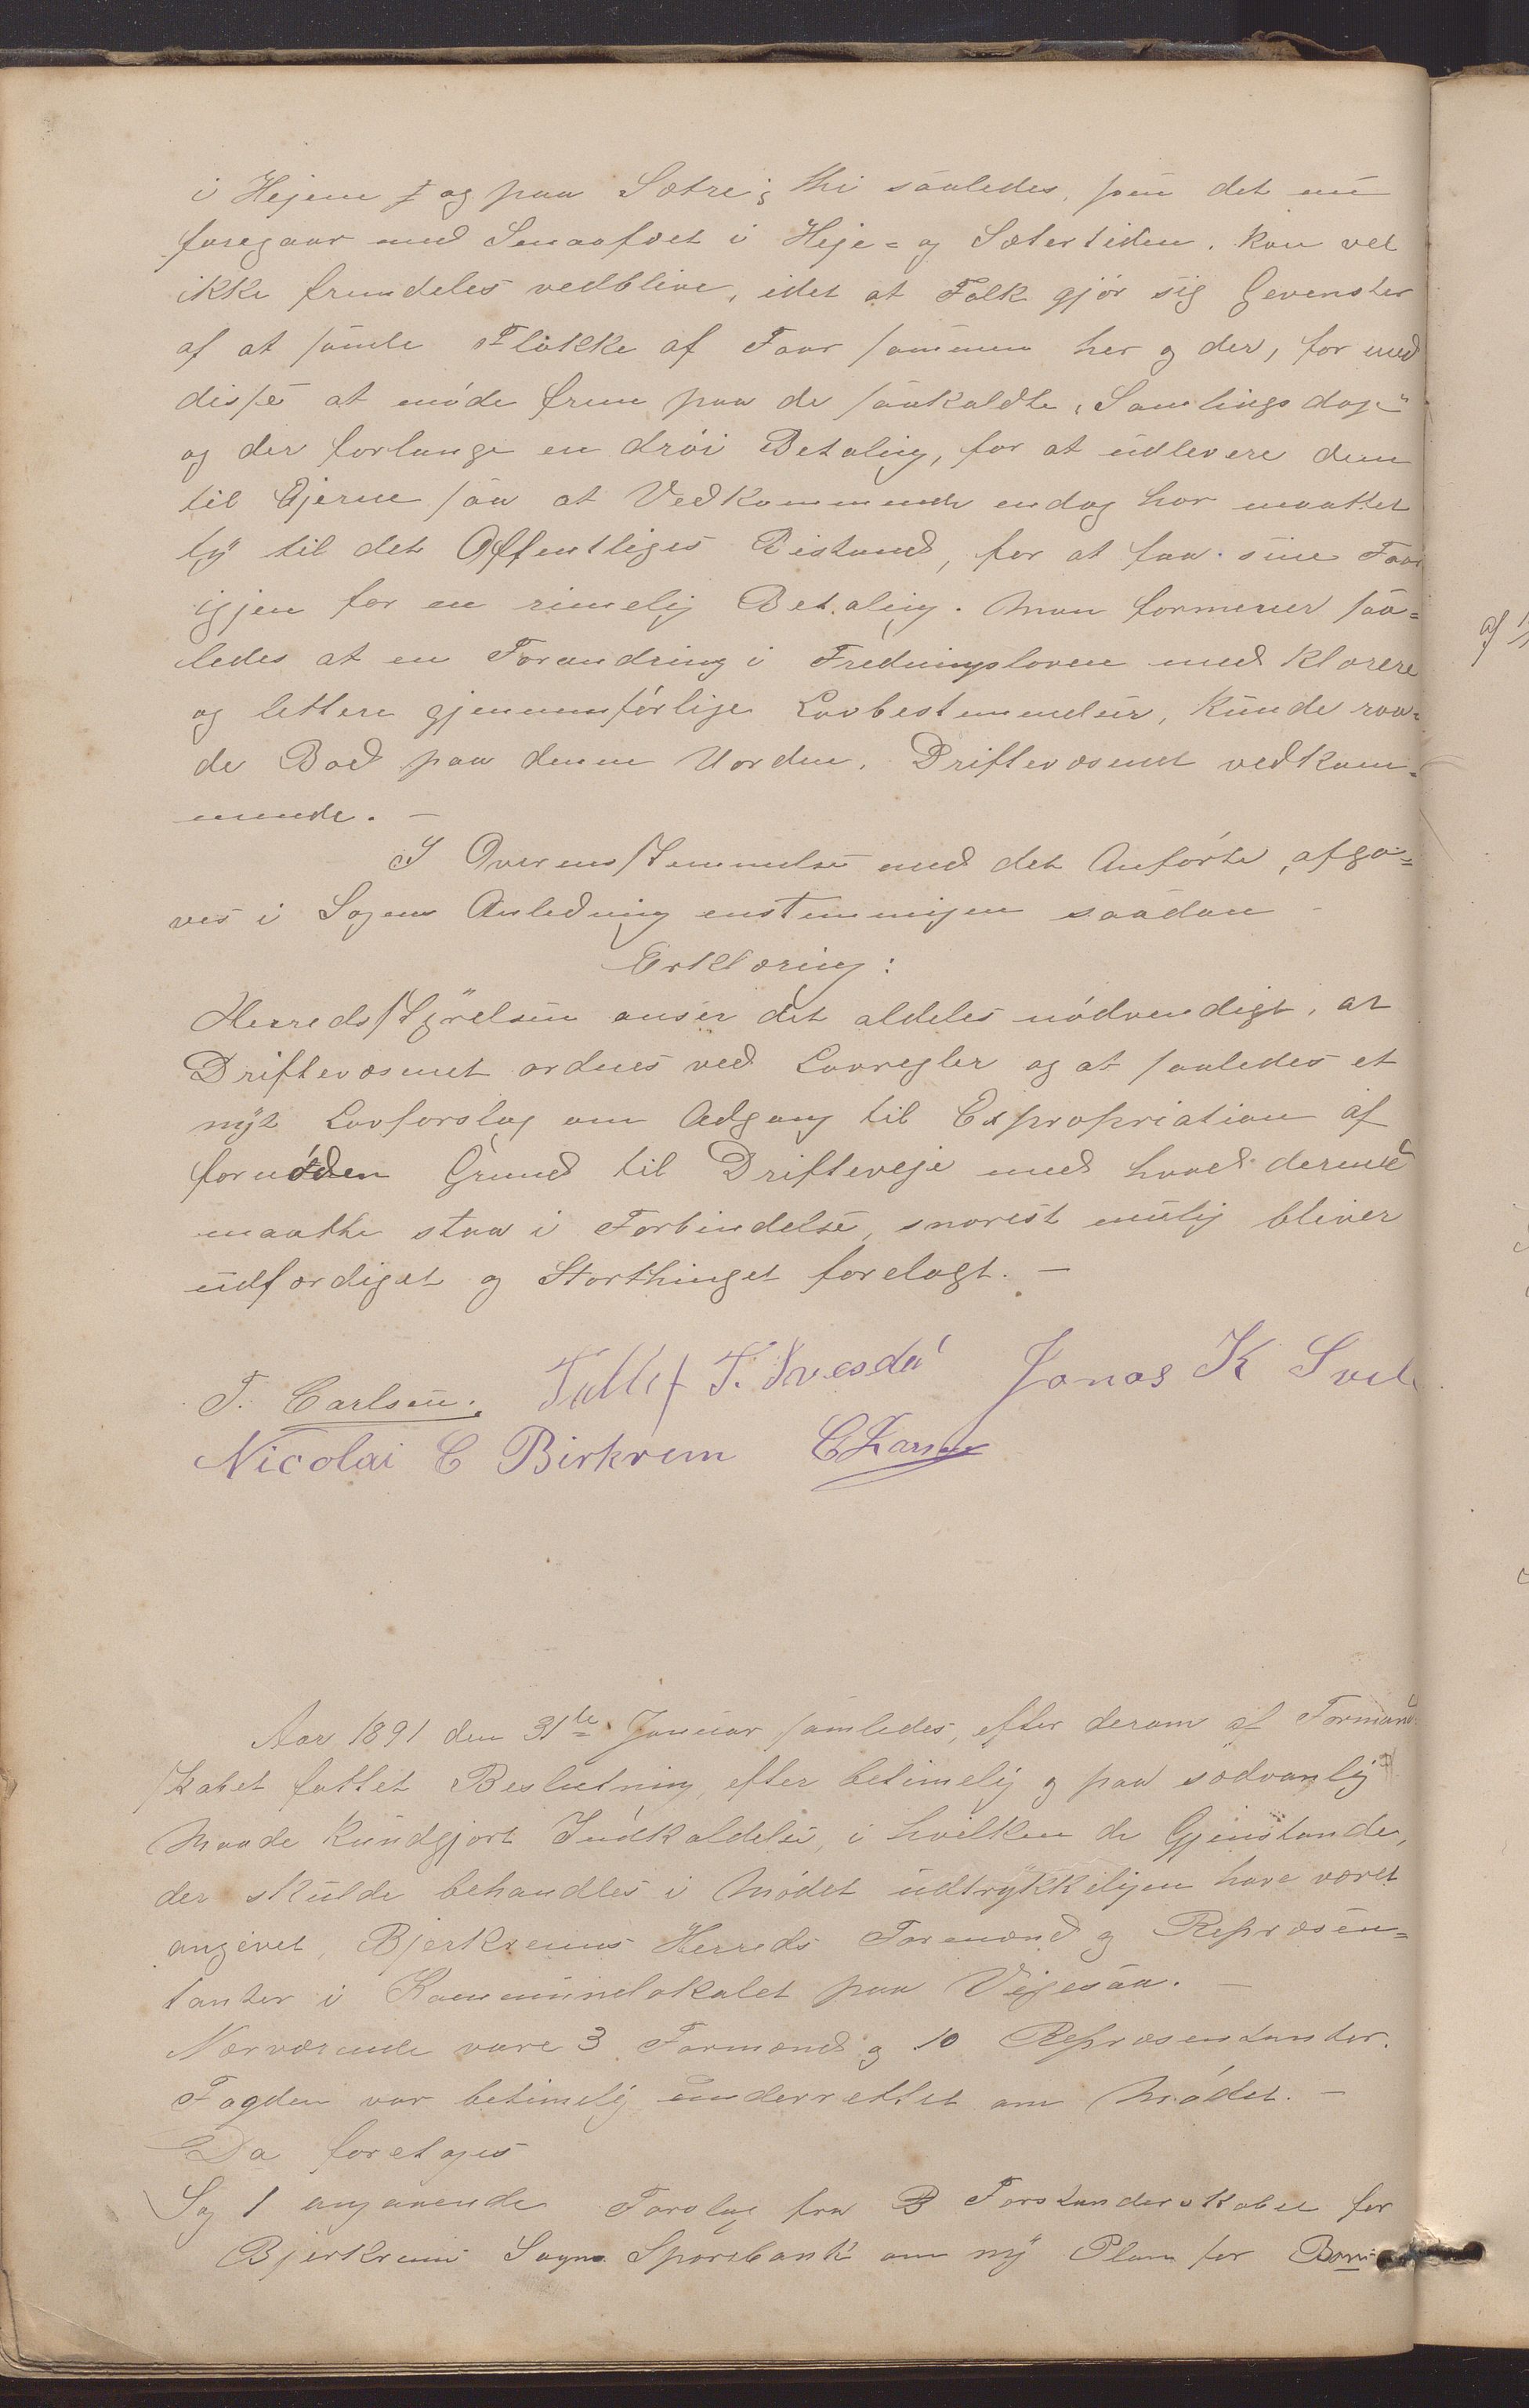 i Hejene og paa Sætre; thi saaledes, som det nu
foregaar med Smaafæet i Heje- og Sætertiden. kan vel
ikke fremdeles vedblive, idet at Folk gjør sig Gevenster
af at samle Flokke af Faar sammen her og der, for med
disse at møde frem paa de saakaldte "Samlingsdage"
og der forlange en drøi Betaling, for at udlevere dem
til Ejerne saa at Vedkommende endog har maattet
ty til det Offentliges Bistand, for at faa sine Faar
igjen for en rimelig Betaling. Man formener saa-
ledes at en Forandring i Fredningsloven med klarere
og lettere gjennemførlige Lovbestemmelser, kunde raa-
de Bod paa denne Uorden. Driftevæsenet vedkom-
mende. —
I Overensstemmelse med det Anførte, afga-
ves i Sagens Anledning enstemmigen saadan
Erklæring:
Herredsstyrelsen anser det aldeles nødvendigt, at
Driftevæsenet ordnes ved Lovregler og at saaledes et
nyt Lovforslag om Adgang til Expropriation af
fornøden Grund til Drifteveje med hvad dermed
maatte staa i Forbindelse, snarest mulig bliver
udfærdiget og Storthinget forelagt. —
T. Carlsen. Tollef T. Jonas K Svel
Nicolai C Birkrem C Larsen
Aar 1891 den 31te Januar samledes, efter derom af Formand-
skabet fattet Beslutning, efter betimelig og paa sædvanlig
Maade kundgjort Indkaldelse, i hvilken de Gjenstande,
der skulde behandles i Mødet udtrykkeligen have været
angivet, Bjerkreims Herreds Formænd og Repræsen-
tanter i Kommunelokalet paa Vigesaa. —
Nærværende vare 3 Formænd og 10 Repræsentanter.
Fogden var betimelig underrettet om Mødet. —
Da foretoges
Sag 1 angaaende Forslag fra Forstanderskabet for
Bjerkreim Sogns Sparebank om ny Plan for
af